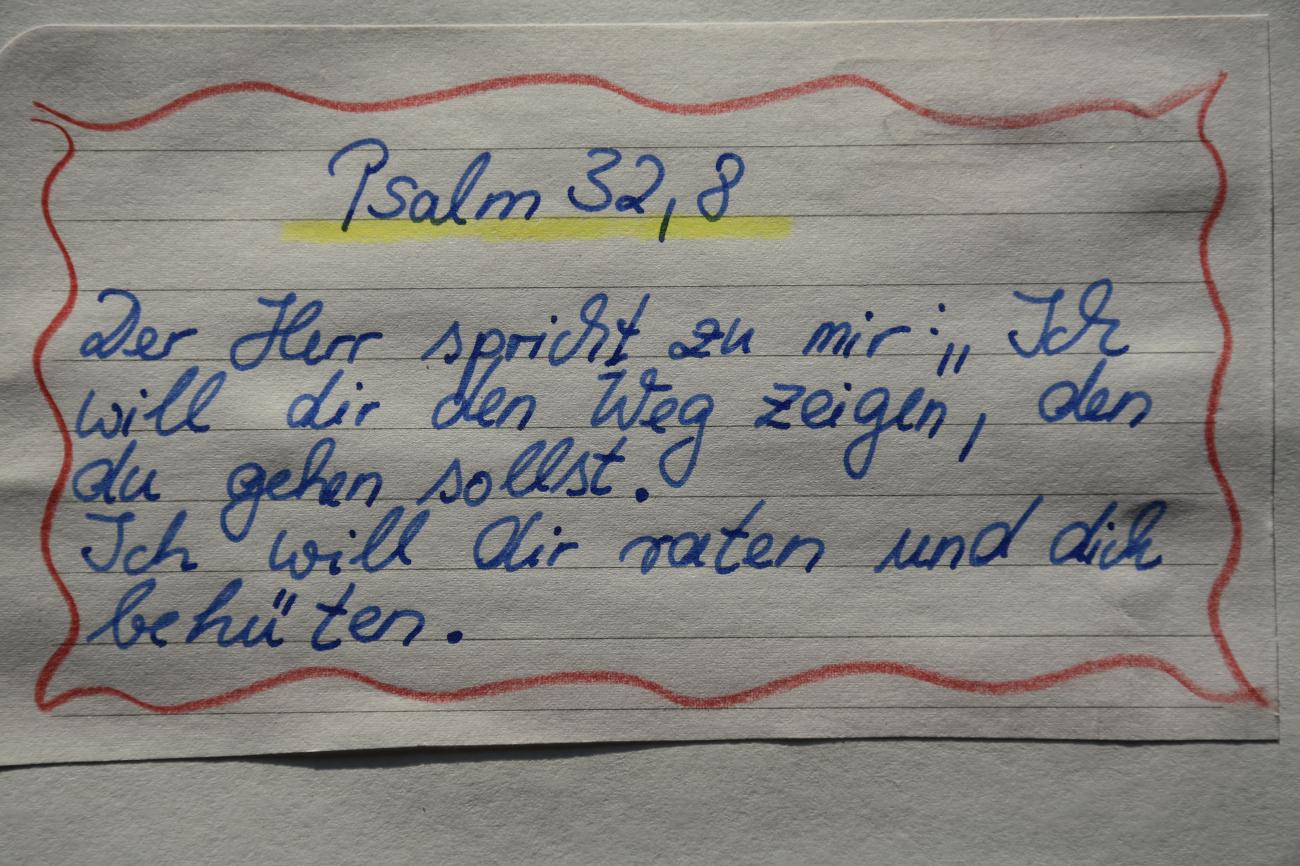 Psalm 32,8
Der Herr spricht zu mir: „Ich
will dir den Weg zeigen, den
du gehen sollst.
Ich will dir raten und dich
behüten.